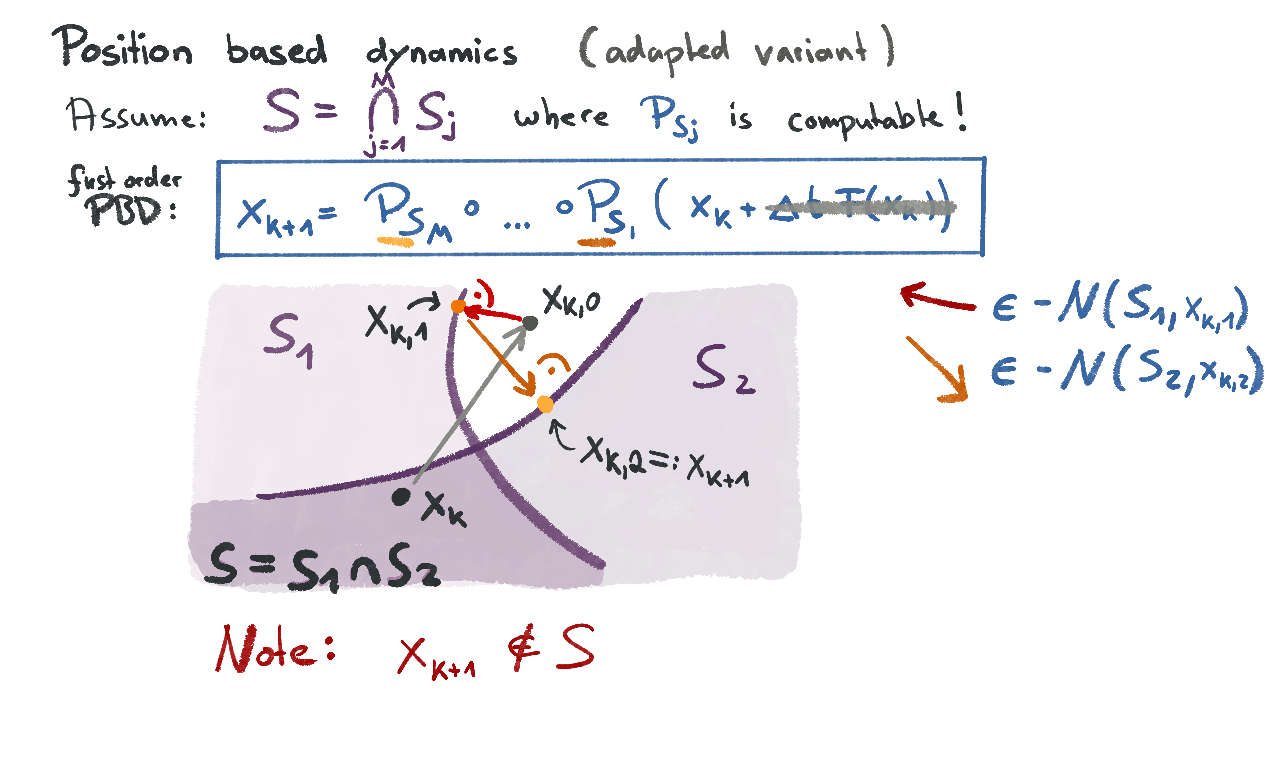 Position based dynamics (adapted variant)
Assume: S = ⋂ⱼ₌₁ᴹ Sⱼ where P_Sⱼ is computable!
first order
PBD: x_{k+1} = P_{S_M} ∘ ... ∘ P_{S_1} ( x_k + Δt f(x_k))
x_{k,1} x_{k,0}
S_1 S_2
∈ -N(S_1, x_{k,1})
∈ -N(S_2, x_{k,2})
x_{k,2} =: x_{k+1}
x_k
S = S_1 ∩ S_2
Note: x_{k+1} ∉ S